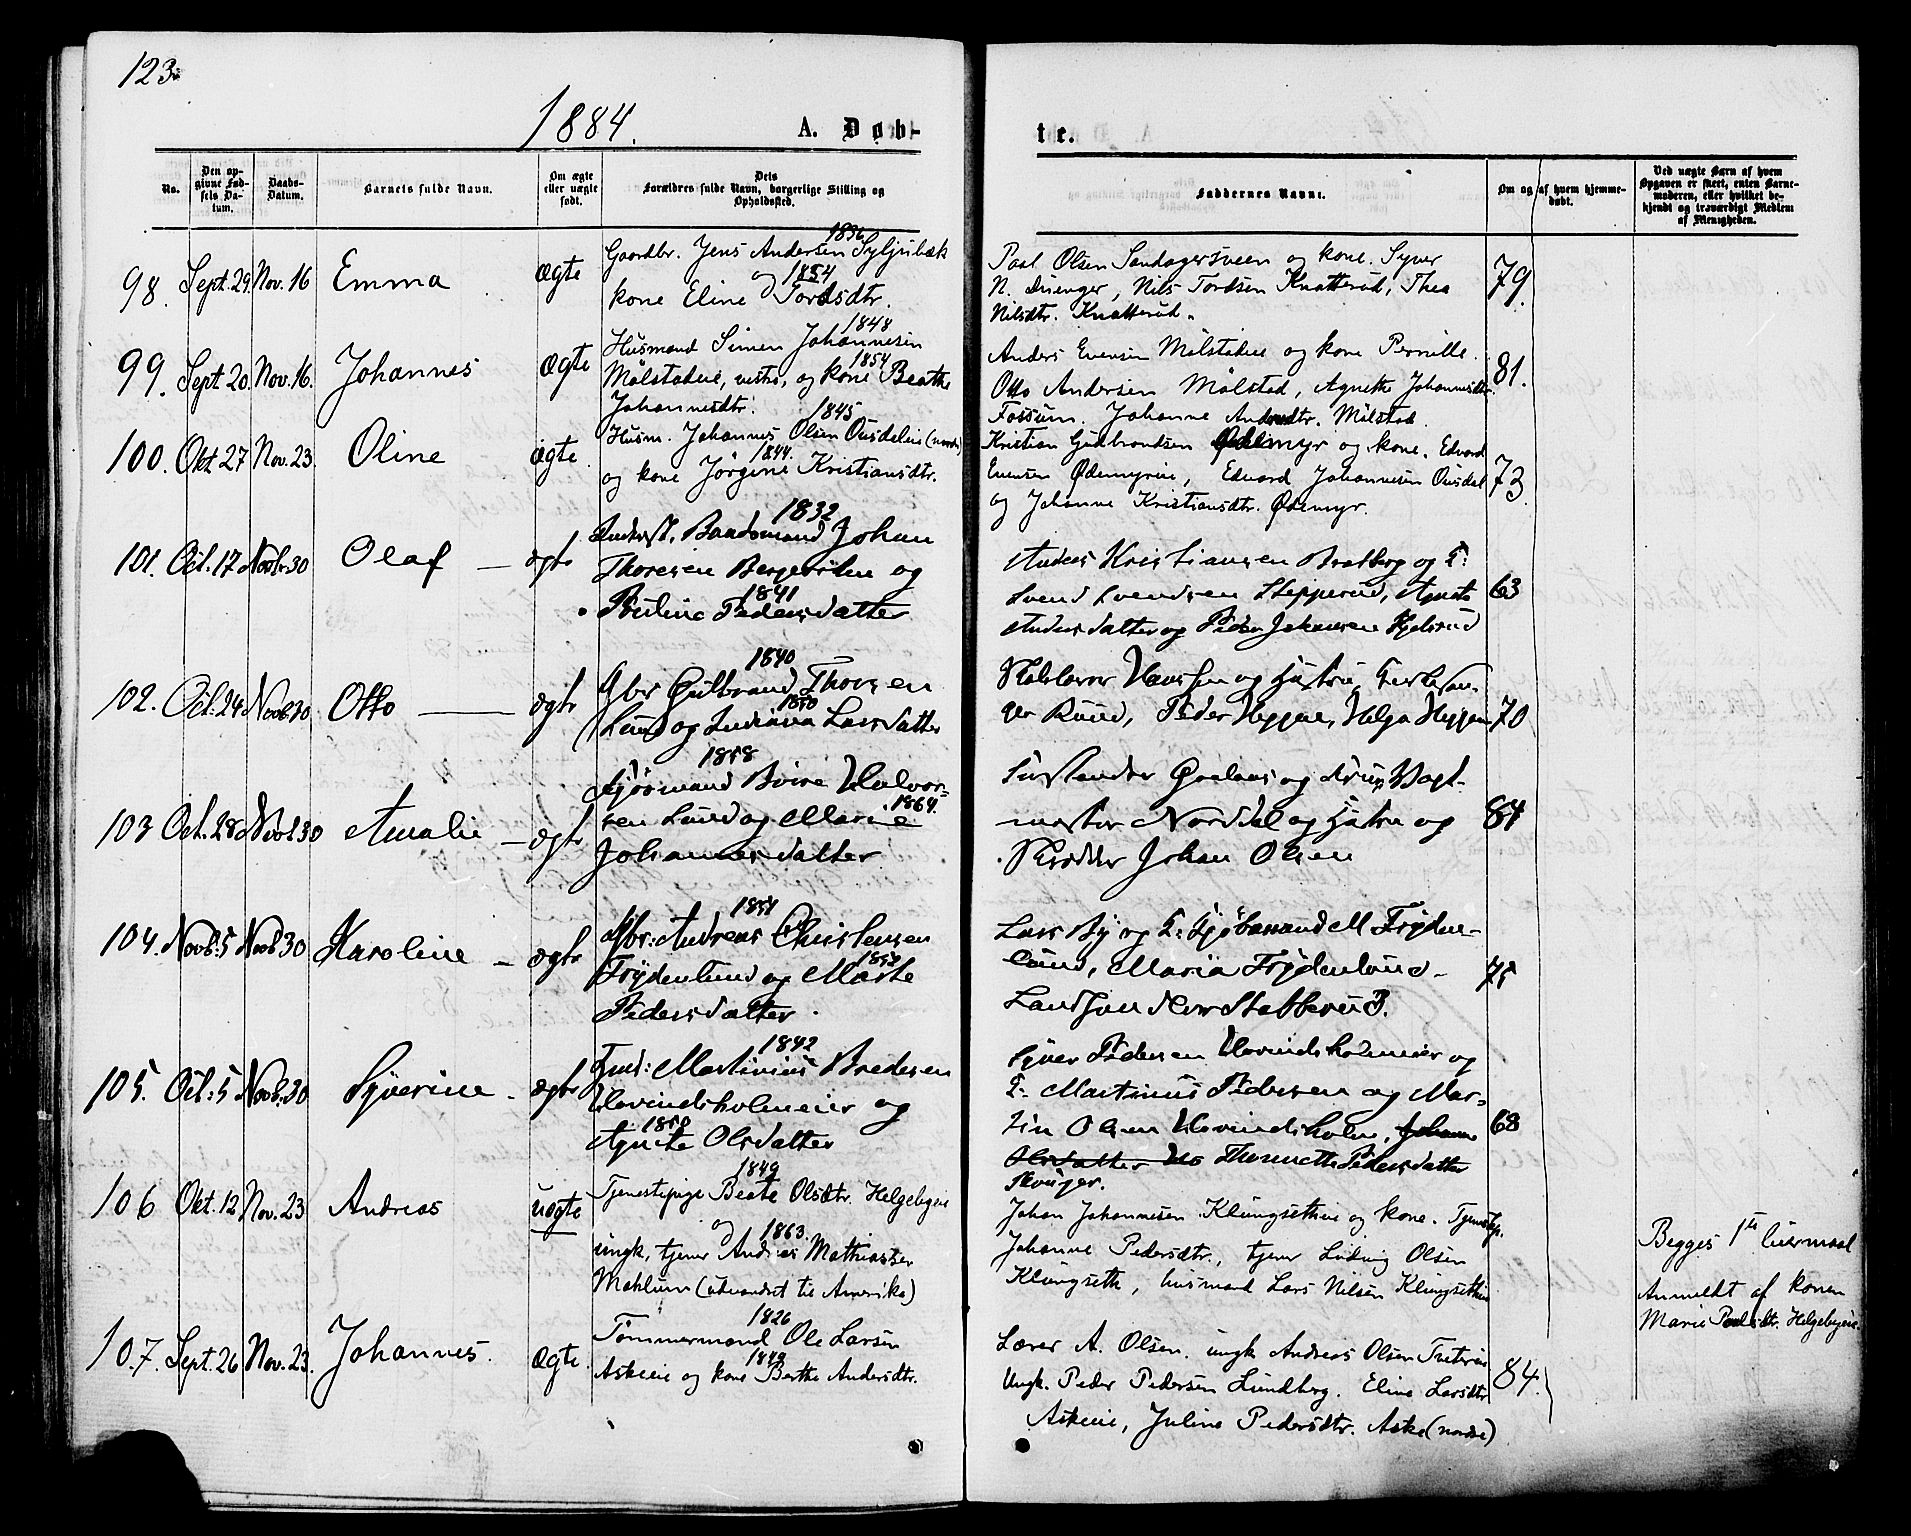 123.
1884.
A. Døb-
te.
No.
Den op-
givne Fød-
sels Da-
tum.
Daabs-
Datum.
Barnets fulde Navn.
Om ægte
eller uægte
født.
Dets
Forældres fulde Navn, borgerlige Stilling og
Opholdssted.
Faddernes Navne.
Om og af hvem hjemme-
døbt.
Ved uægte Barn af hvem
Opgaven er skeet, enten Barne-
moderen, eller hvilket be-
kjendt og troværdigt Medlem
af Menigheden.
98. Sept. 29. Nov. 16 Emma ægte
1836
Gaardbr. Jens Andersen Syljubæk
og 1854
kone Eline Tordsdtr.
Paal Olsen Sandagersveen og kone. Syver
N. Duenger, Nils Tordsen Knatterud, Thea
Nilsdtr. Knatterud.
79.
99. Sept. 20. Nov. 16. Johannes ægte
1848
Husmand Simen Johannesen
1854
Målstadeie, vestre, og kone Beathe
Johannesdtr.
Anders Evensen Målstadeie og kone Pernille.
Otto Andersen Målstad, Agnethe Johannesdtr.
Fossum. Johanne Andersdtr. Målstad.
81.
100. Okt. 27 Nov. 23. Oline ægte
1845
Husm. Johannes Olsen Ousdaleie (nordre)
1844.
og kone Jørgine Kristiansdtr.
Kristian Gudbrandsen Ødemyr og kone. Edvard
Evensen Ødemyreie, Edvard Johannesen Ousdal
og Johanne Kristiansdtr. Ødemyr.
73
101. Oct. 17 Novbr. 30 Olaf — ægte
1832
Baadsmand Johan
Thoresen og
1841
Pauline Pedersdatter
Anders Kristiansen Bratberg og F:
Svend Svendsen Stepperud, Agnete
Andersdatter og Peder Johansen
63
102. Oct. 24 Novb. 30. Otto — ægte
1840
Gbr Gulbrand Thorsen
1850
Lund og Indiana Larsdatter
Hansen og Hustru,
Ruud, Peder Heggen, Helga Heggen
70
103 Oct. 28 Novb. 30 Amalie — ægte
1858
Halvor-
1864.
sen Lund og Marie
Johannesdatter
og Vagt-
mester Norddal og Hustru og
Skrædder Johan Olsen
84
104. Novb. 5 Novb. 30 Karoline — ægte
1851
Gbr: Andreas Christensen
Frydenlund og Marte
Pedersdatter.
Lars By og F: M Fryden-
lund, Maria Frydenlund —
75
105. Oct: 5 Novb. 30 Syverine — ægte
1842
Inds: Martinius Bredesen
Hovindsholmeier og
1850
Agnete Olsdatter
Syver Pedersen Hovindsholmeier og
F: Martinus Pedersen og Mar-
tin Olsen Hovindsholm, Johanne
Olsdatter Thonette Pedersdatter
68
106 Okt. 12 Nov. 23 Andreas uægte
1849
Tjenestepige Beate Olsdtr. Helgebyeie
og 1863.
ungk., tjener Andreas Mathiassen
Mæhlum (udvandret til Amerika)
Johan Johannesen Klungsetheie og kone. Tjenestep.
Johanne Pedersdtr., tjener Ludvig Olsen
Klungseth, husmand Lars Nilsen Klungsetheie
Begges 1ste leiermaal
Anmeldt af konen
Marie Paulsdtr. Helgebyeie.
107. Sept. 26 Nov. 23. Johannes. ægte.
1826
Tømmermand Ole Larsen
1849
Askeeie og kone Berthe Andersdtr.
Lærer A. Olsen. ungk. Andreas Olsen
Ungk. Peder Pedersen Lundberg. Eline Larsdtr.
Askeeie, Juline Pedersdtr. Aske (nordre)
84.